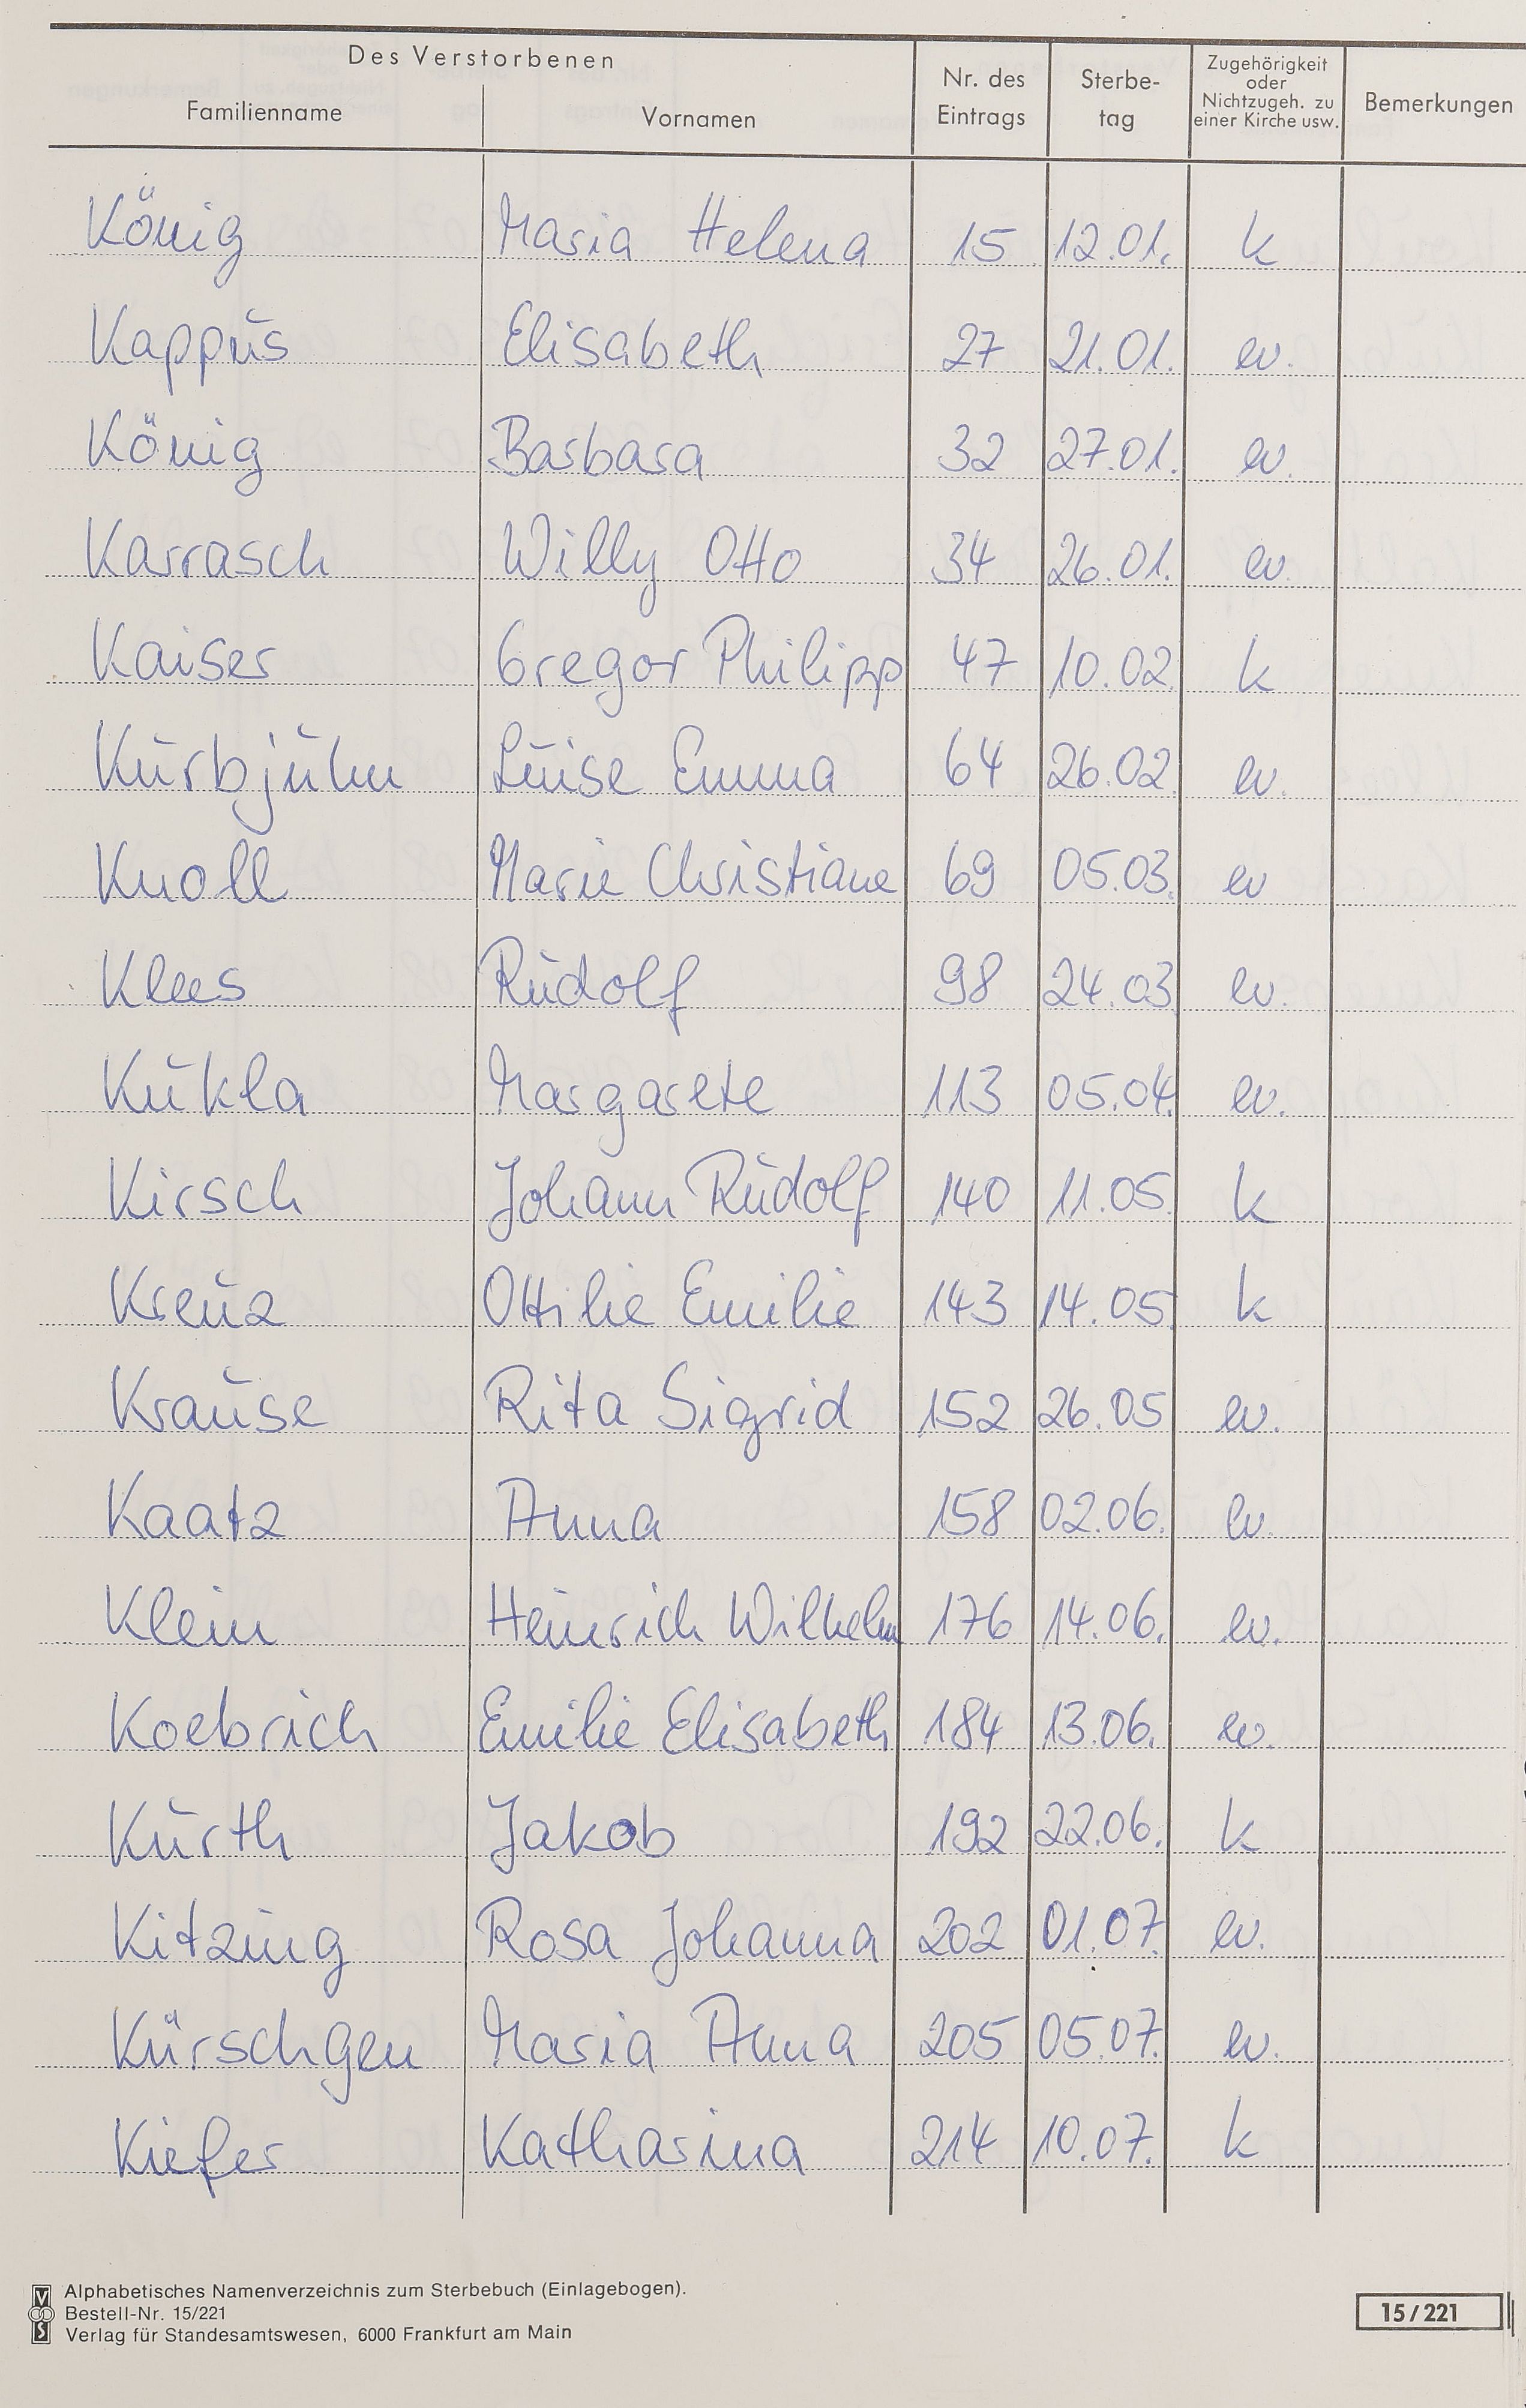 Des Verstorbenen
Familienname Vornamen Nr. des Eintrags Sterbe-tag Zugehörigkeit oder Nichtzugeh. zu einer Kirche usw. Bemerkungen
König Maria Helena 15 12.01. k
Kappus Elisabeth 27 21.01. ev.
König Barbara 32 27.01. ev.
Karrasch Willy Otto 34 26.01. ev.
Kaiser Gregor Philipp 47 10.02. k
Kurbjuhn Luise Emma 64 26.02. ev.
Knoll Marie Christiane 69 05.03. ev
Klees Rudolf 98 24.03. ev.
Kukla Margarete 113 05.04. ev.
Kirsch Johann Rudolf 140 11.05. k
Kreuz Ottilie Emilie 143 14.05. k
Krause Rita Sigrid 152 26.05 ev.
Kaatz Anna 158 02.06. ev.
Klein Heinrich Wilhelm 176 14.06. ev.
Koebrich Emilie Elisabeth 184 13.06. ev.
Kurth Jakob 192 22.06. k
Kitzing Rosa Johanna 202 01.07. ev.
Kürschgen Maria Anna 205 05.07. ev.
Kiefer Katharina 214 10.07. k
Alphabetisches Namenverzeichnis zum Sterbebuch (Einlagebogen).
Bestell-Nr. 15/221
Verlag für Standesamtswesen, 6000 Frankfurt am Main
15/221